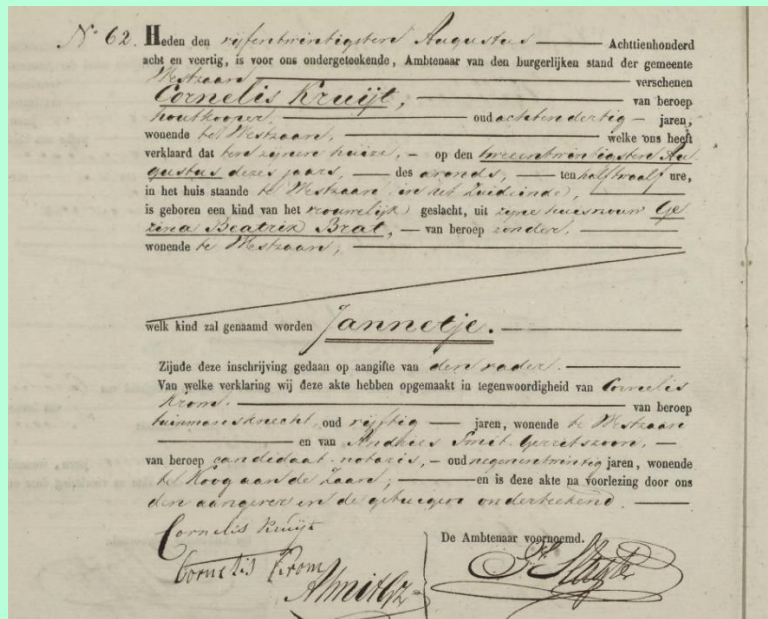 N° 62. Heden den vijfentwintigsten Augustus Achttienhonderd
acht en veertig, is voor ons ondergeteekende, Ambtenaar van den burgerlijken stand der gemeente
Westzaan verschenen
Cornelis Kruijt, van beroep
houtkooper, oud achtendertig jaren,
wonende te Westzaan, welke ons heeft
verklaard dat ten zijnen huize, op den tweentwintigsten Au-
gustus dezes jaars, des avonds, ten half twaalf ure,
in het huis staande te Westzaan in het Zuideinde,
is geboren een kind van het vrouwelijk geslacht, uit zijne huisvrouw Ge-
zina Beatrix Brat, van beroep zonder,
wonende te Westzaan,
welk kind zal genaamd worden Jannetje.
Zijnde deze inschrijving gedaan op aangifte van den vader.
Van welke verklaring wij deze akte hebben opgemaakt in tegenwoordigheid van Cornelis
Krom. van beroep
tuinmansknecht, oud vijftig jaren, wonende te Westzaan
en van Andries Smit Gerritszoon,
van beroep candidaat-notaris, oud negenentwintig jaren, wonende
te Koog aan de Zaan, en is deze akte na voorlezing door ons
den aangever en de getuigen onderteekend.
Cornelis Kruijt
De Ambtenaar voornoemd.
Cornelis Krom
ASmitGz